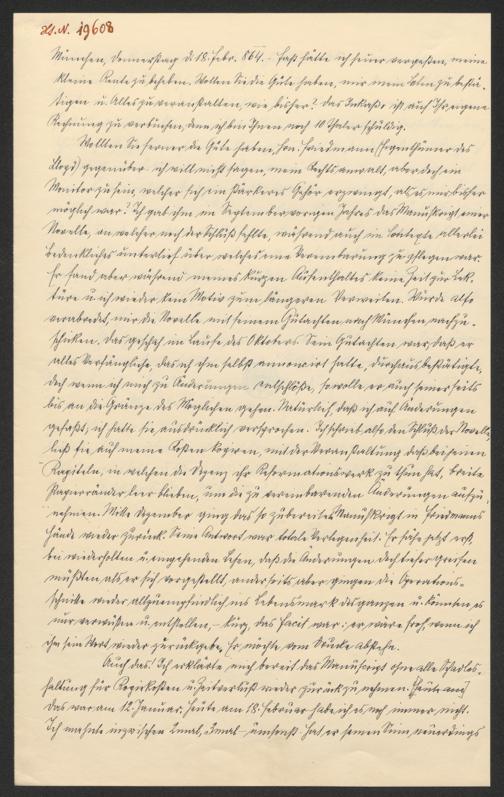 H.I.N. 19608
München, Donnerstag d. 18. Febr. 864. – Fast hätte ich heuer vergeßen, meine
kleine Rente zu beheben. Wollen Sie die Güte haben, mir mein Leben zu bestä-
tigen u. Alles zu veranstalten, wie bisher? Das Inkasso ist auf Ihre eigene
Rechnung zu verbuchen, denn ich bin Ihnen noch 10 Thaler schuldig.
Wollten Sie ferner die Güte haben, Hrn. Friedmann (Eigenthümer des
Lloyd) gegenüber ich will nicht sagen, mein Rechtsanwalt, aber doch ein
Monitor zu sein, welcher sich ein stärkeres Gehör erzwingt, als es mir bisher
möglich war? Ich gab ihm im September vorigen Jahres das Manuskript einer
Novelle, an welcher noch der Schluß fehlte, während auch im Contexte allerlei
Bedenkliches unterlief über welches eine Vereinbarung zu pflegen war.
Er fand aber während meines kurzen Aufenthaltes keine Zeit zur Lek-
türe u. ich wieder kein Motiv zum längeren Verweilen. Wurde also
verabredet, mir die Novelle mit seinem Gutachten nach München nachzu-
schicken. Das geschah im Laufe des Oktobers. Sein Gutachten war, daß er
alles Verfängliche, das ich ihm selbst annoncirt hatte, durchaus bestätigte,
doch wenn ich mich zu Änderungen entschlöße, so wolle er auch seinerseits
bis an die Gränze des Möglichen gehen. Natürlich, daß ich auf Änderungen
gefaßt, ich hatte sie ausdrücklich versprochen. Ich schrieb also den Schluß der Novelle,
ließ sie auf meine Kosten kopiren, mit der Veranstaltung daß bei jenen
Kapiteln, in welchen die Szenz ihr Reformationswerk zu thun hat, breite
Papierränder leer blieben, um die zu vereinbarenden Änderungen aufzu-
nehmen. Mitte Dezember ging das so zubereitete Manuskript in Friedmanns
Hände wieder zurück. Seine Antwort war totale Verlegenheit. Er sähe jetzt erst,
bei wiederholtem u. eingehenden Lesen, daß die Änderungen doch tiefer greifen
müßten, als er sich vorgestellt, anderseits aber gingen die Operations-
schnitte wieder allzuempfindlich ins Lebensmark des ganzen u. könnten es
nur verwüsten u. entstellen, – kurz, das Facit war: er wäre froh, wenn ich
ihm sein Wort wieder zurückgebe. Er möchte vom Drucke abstehn.
Auch das! Ich erklärte mich bereit das Manuscript ohne alle Schadlos-
haltung für Kopirkosten u. Zeitverlust wieder zurück zu nehmen.
Das war am 12. Januar. Heute am 18. Februar habe ich es noch immer nicht.
Ich mahnte inzwischen 2 mal, 3 mal – umsonst. Hat er seinen Sinn neuerdings